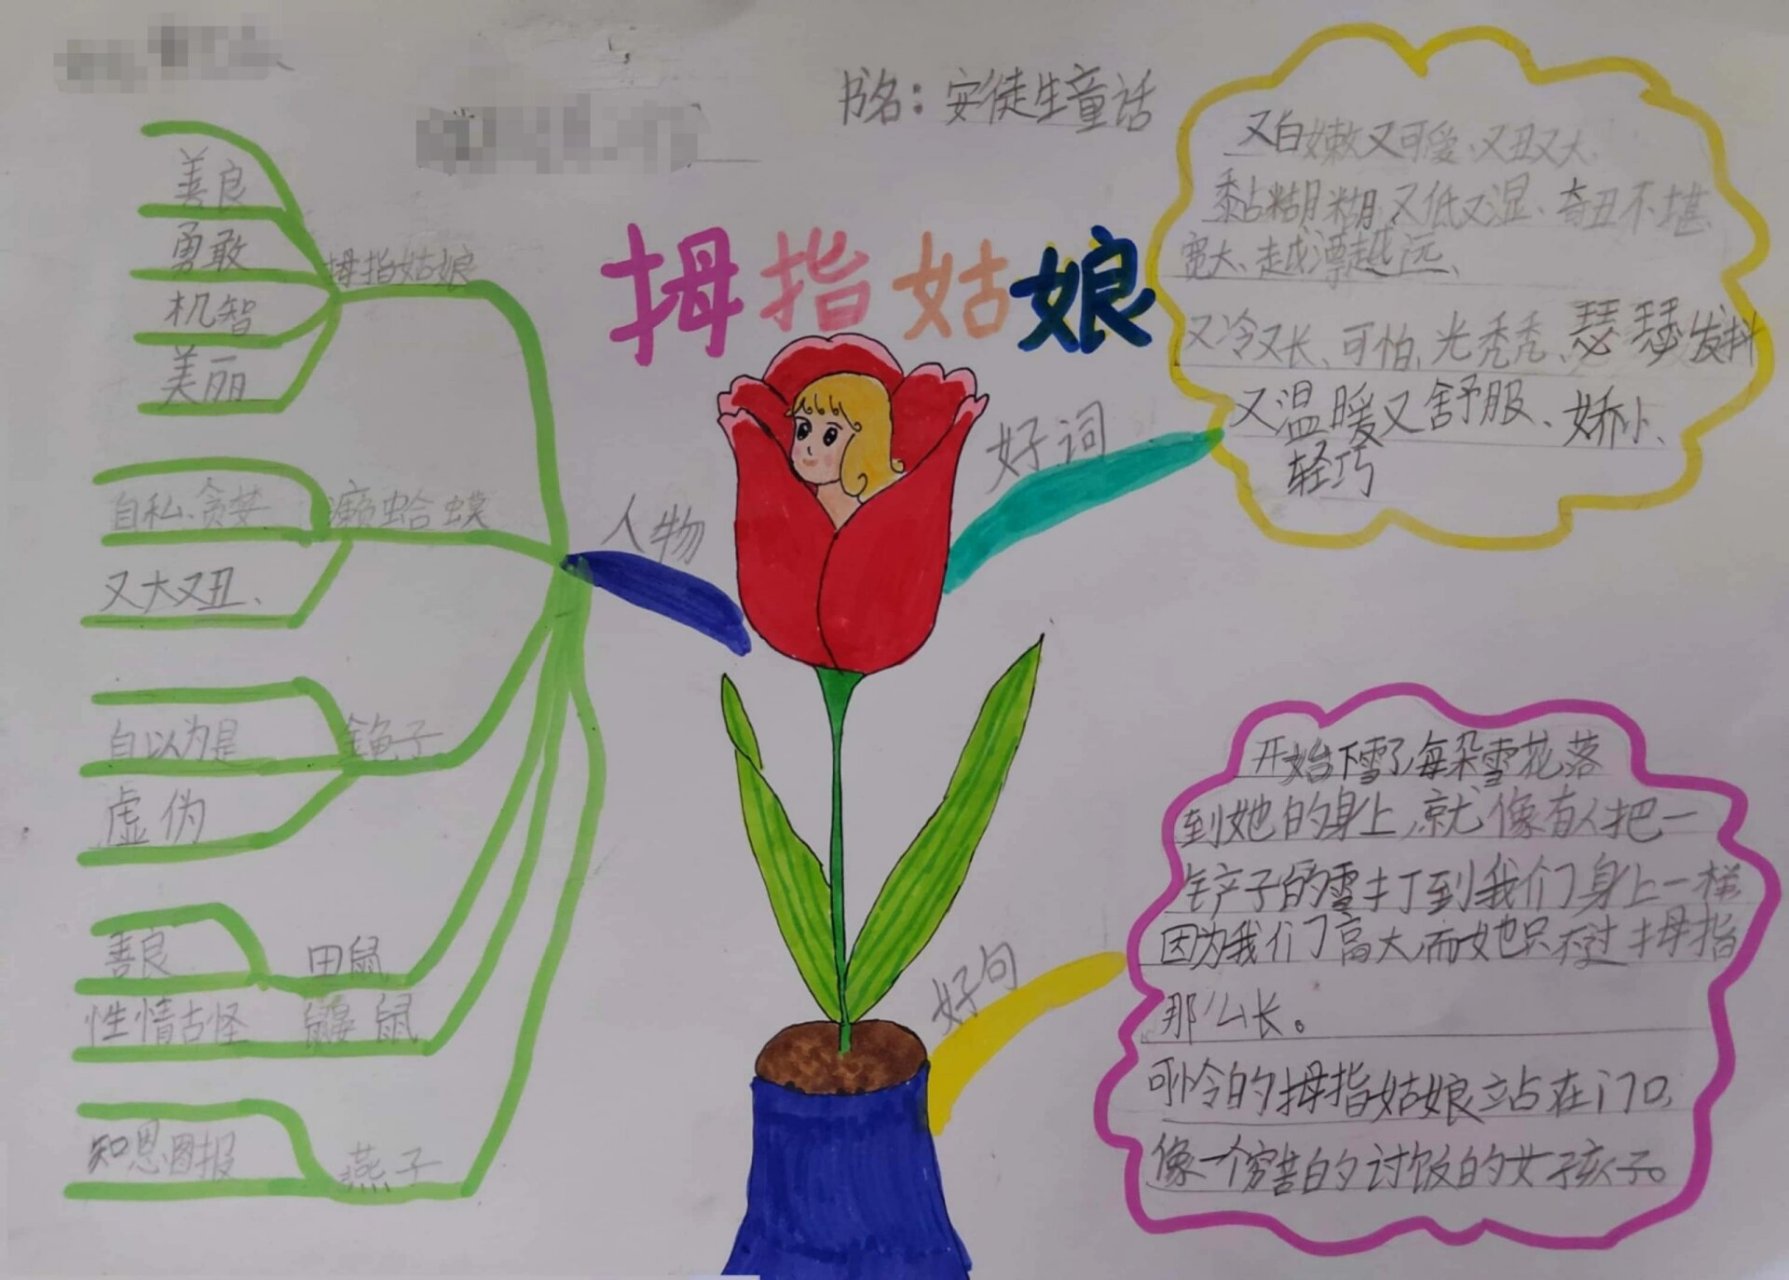 书名：安徒生童话
拇指姑娘
人物
拇指姑娘
善良
勇敢
机智
美丽
癞蛤蟆
自私、贪婪
又大又丑、
金龟子
自以为是
虚伪
田鼠
善良
鼹鼠
性情古怪
燕子
知恩图报
好词
又白嫩又可爱、又丑又大、
黏糊糊、又低又湿、奇丑不堪
宽大、越漂越远、
又冷又长、可怕、光秃秃、瑟瑟发抖
又温暖又舒服、娇小、
轻巧
好句
开始下雪了,每朵雪花落
到她的身上,就像有人把一
铲子的雪打到我们身上一样
因为我们高大,而她只不过拇指
那么长。
可怜的拇指姑娘站在门口,
像一个穷苦的讨饭的女孩子。